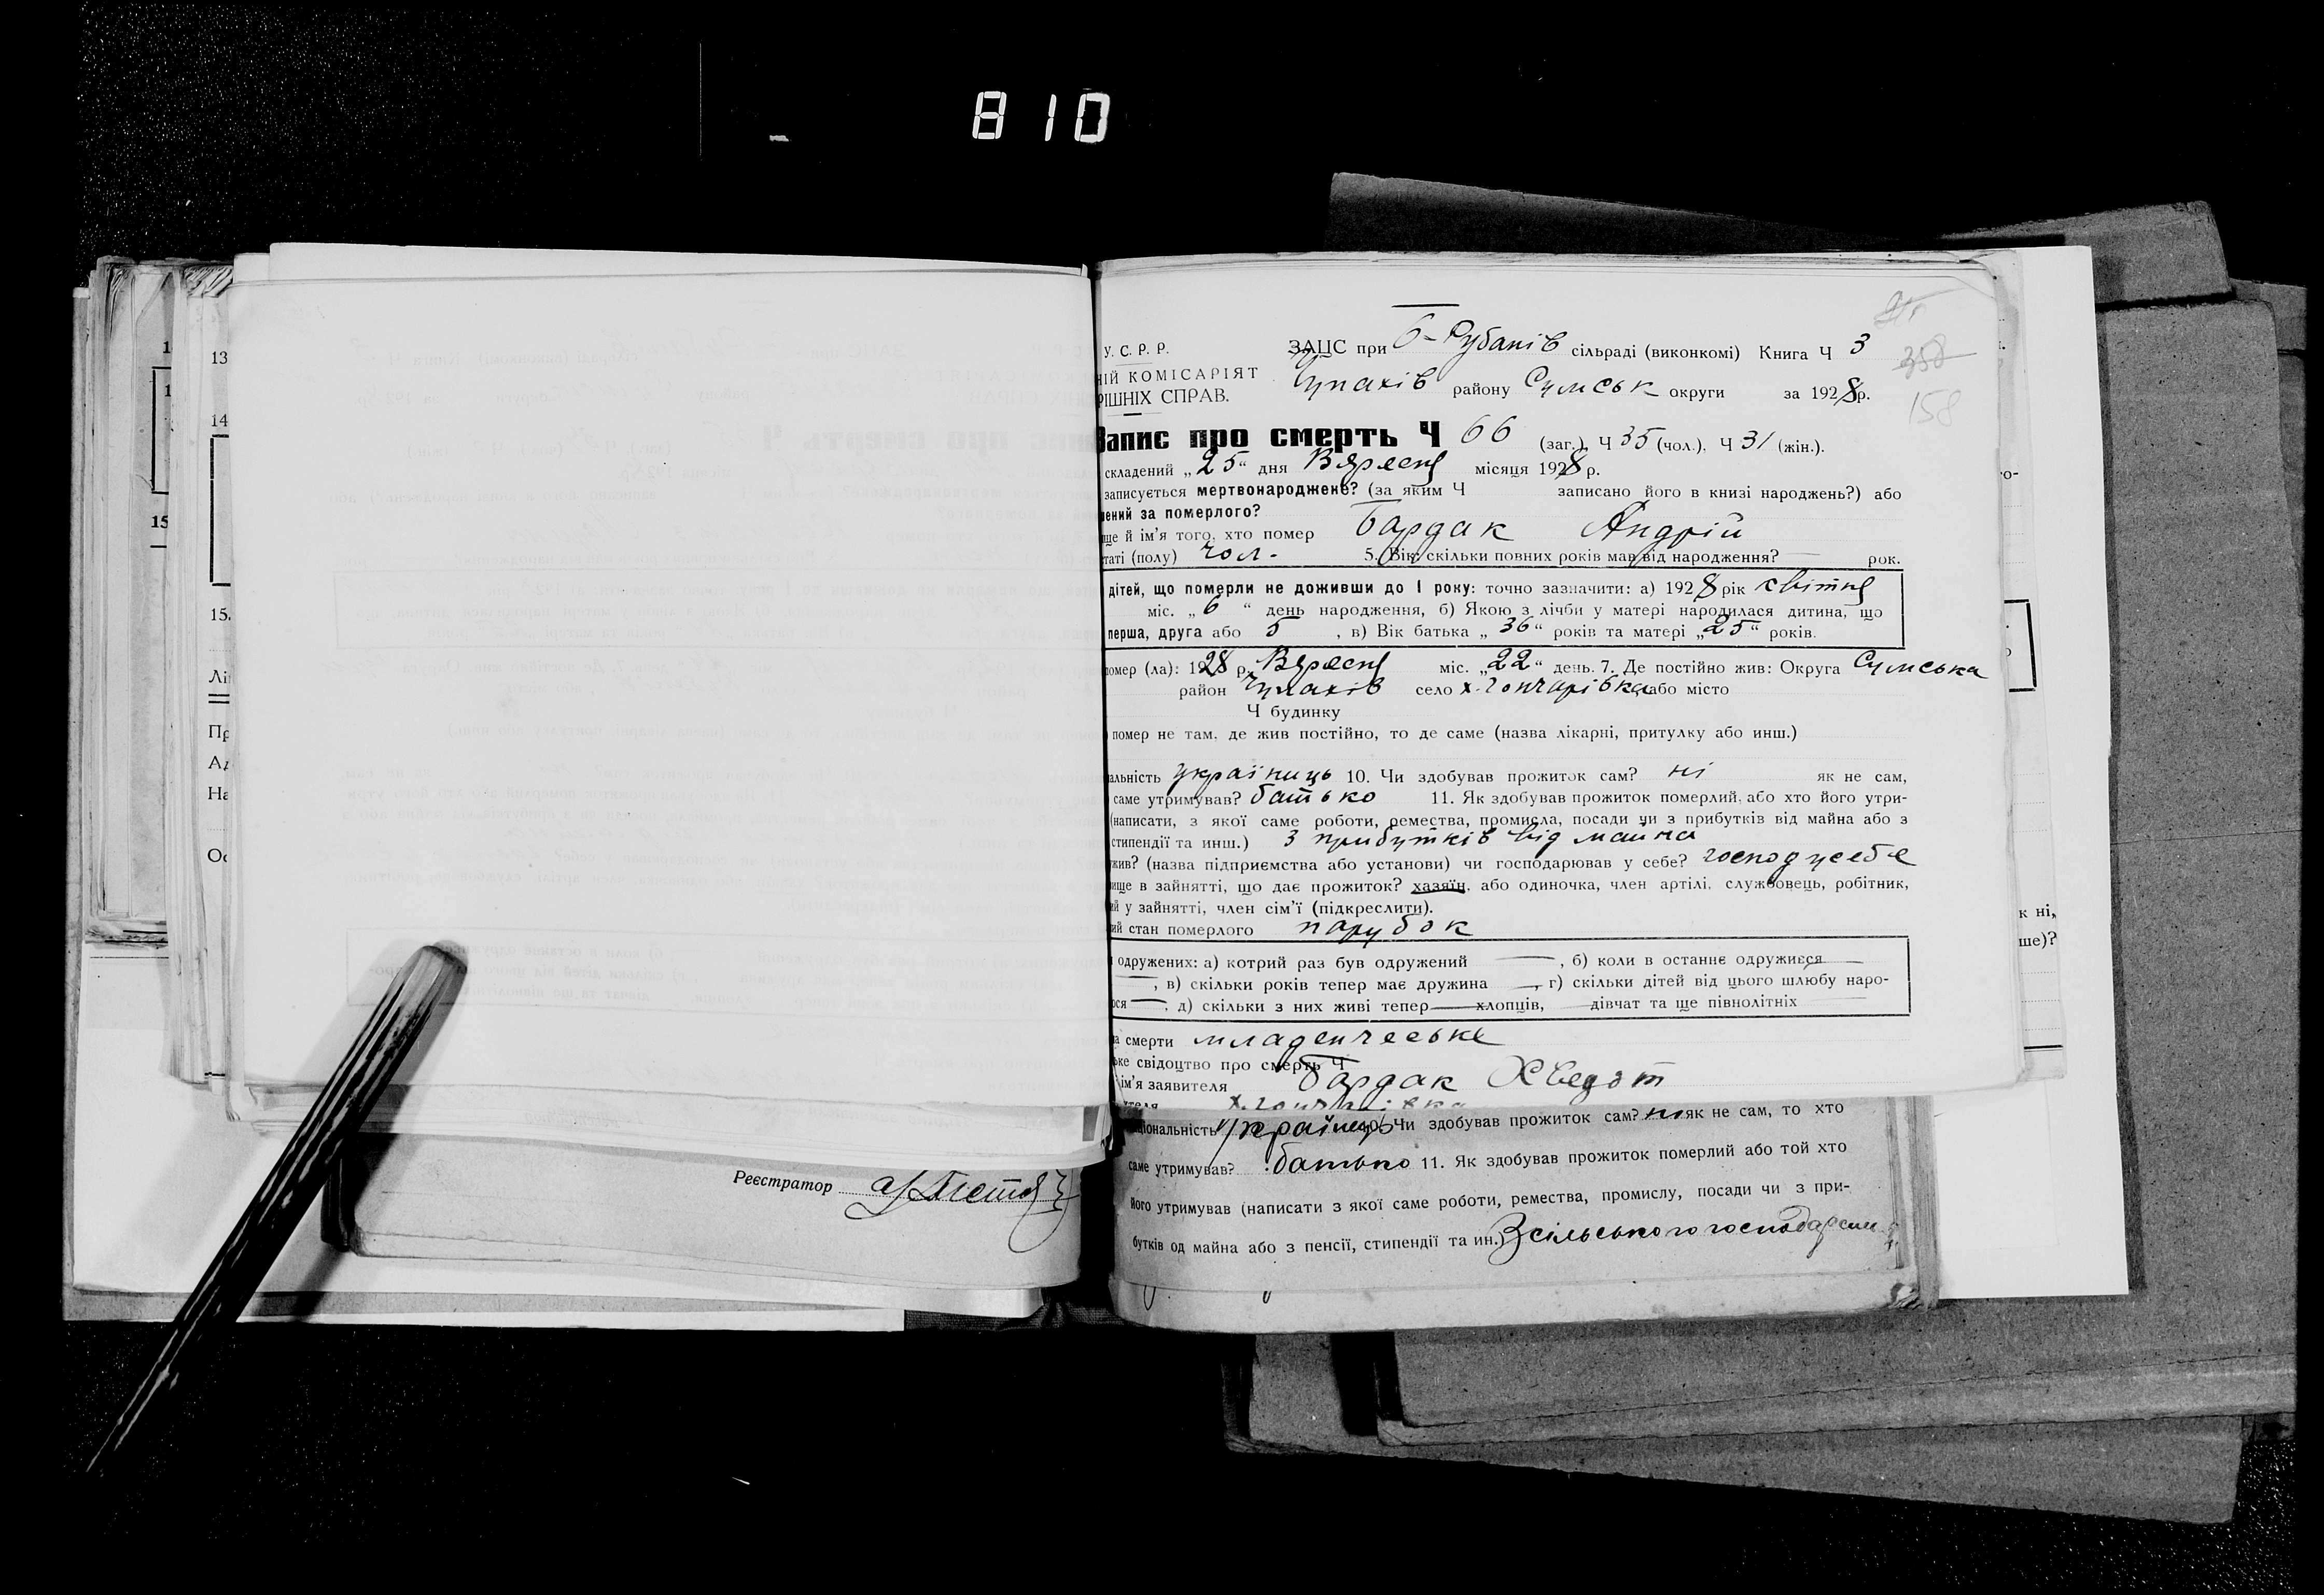 810
У. С. Р. Р.
ЗАЦС при б-Рубанів сільраді (виконкомі) Книга Ч 3
НІЙ КОМІСАРІЯТ
РІШНІХ СПРАВ.
Чупахів району Сумськ округи за 1928 р.
358
158
Запис про смерть Ч 66 (заг.), Ч 35 (чол.), Ч 31 (жін.).
складений „25“ дня Вяресня місяця 1928 р.
записується мертвонароджене? (за яким Ч записано його в книзі народжень?) або
ений за померлого?
ще й ім'я того, хто помер Бардак Андрій
таті (полу) чол. 5. Вік: скільки повних років мав від народження? — рок.
дітей, що померли не доживши до 1 року: точно зазначити: а) 1928 рік квітня
міс. „6“ день народження, б) Якою з лічби у матері народилася дитина, що
перша, друга або 5, в) Вік батька „36“ років та матері „25“ років.
помер (ла): 1928 р. Вяресня міс. „22“ день. 7. Де постійно жив: Округа Сумська
район Чупахів село х. Гончарівка або місто
Ч будинку
помер не там, де жив постійно, то де саме (назва лікарні, притулку або инш.)
альність україниць 10. Чи здобував прожиток сам? ні як не сам,
саме утримував? батько 11. Як здобував прожиток померлий, або хто його утри-
(написати, з якої саме роботи, ремества, промисла, посади чи з прибутків від майна або з
стипендії та инш.) З прибутків від майна
жив? (назва підприємства або установи) чи господарював у себе? господ у себе
ище в зайнятті, що дає прожиток? хазяїн, або одиночка, член артілі, службовець, робітник,
ий у зайнятті, член сім'ї (підкреслити).
ий стан померлого парубок
одружених: а) котрий раз був одружений —, б) коли в останнє одружився —
—, в) скільки років тепер має дружина —, г) скільки дітей від цього шлюбу наро-
ося —, д) скільки з них живі тепер — хлопців, — дівчат та ще півнолітніх —
а смерти младенчеське
ке свідоцтво про смерть Ч
ім'я заявителя Бардак Хведот
ителя х. Гончарівка
ціональність українець 10. Чи здобував прожиток сам? ні як не сам, то хто
саме утримував? батько 11. Як здобував прожиток померлий або той хто
його утримував (написати з якої саме роботи, ремества, промислу, посади чи з при-
бутків од майна або з пенсії, стипендії та ин.) З сільського господарст
Реєстратор
13
14
15.
Лі
Пр
Ад
На
Ос
15
к ні,
ше)?